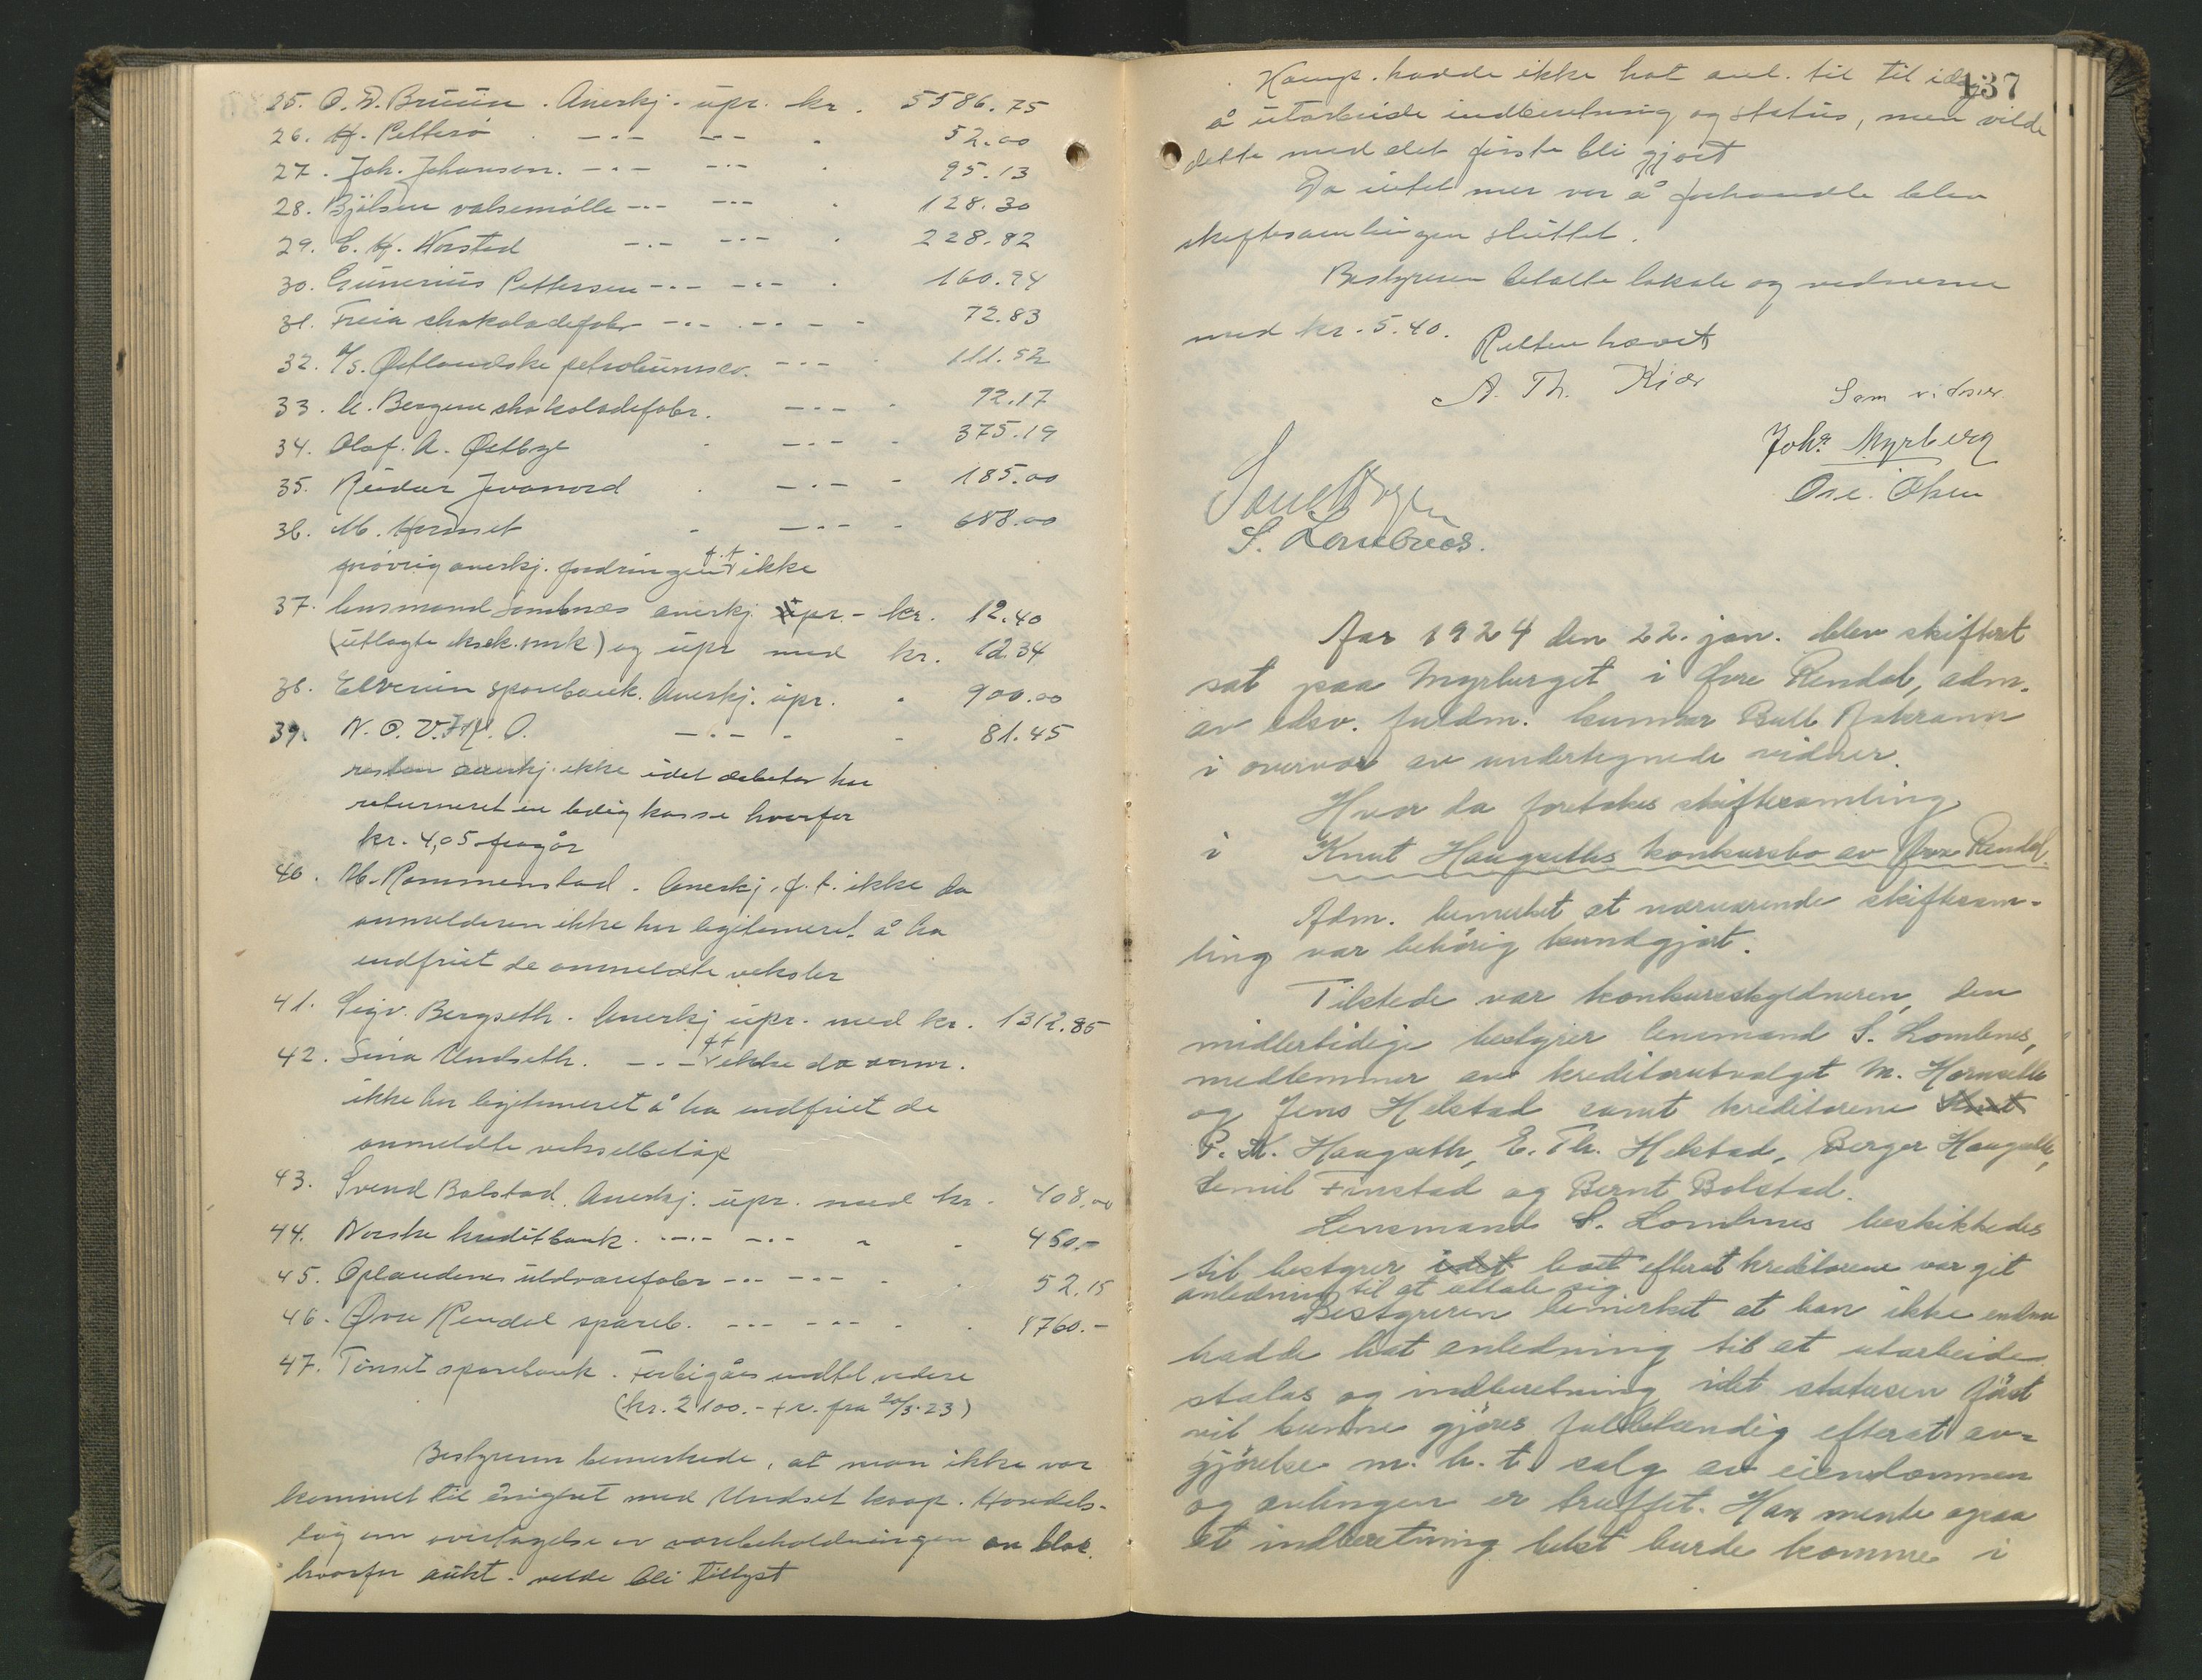 25. O. D. Bruun. Anerkj. upr. kr. 5586.75
26. H. Petterø . —·— —·— . 52.00
27. Joh. Johansen. —·— —·— . 95.13
28. Bjølsen valsemølle —·— —·— . 128.30
29. E. H. Norstad —·— —·— . 228.82
30. Gunerius Pettersen —·— —·— . 160.94
31. Freia chokoladefabr —·— —·— - 72.83
32. A/S. Østlandske petroleumsco. —·— . 111.52
33. A. Bergene chokoladefabr. —·— - 92.17
34. Olaf. A. Østbye . —·— - 375.19
35. Reidar . —·— - 185.00
36. M. Hornset . —·— - 688.00
forøvrig anerkj. fordringen f.t. ikke
37. lensmand Lombnæs anerkj. upr. - kr. 12.40
(utlagte eksek. omk) og upr med kr. 12.34
38. Elverum sparebank. Anerkj. upr. - 900.00
39. —·— - - 81.45
resten anerkj. ikke idet debitor har
returneret en ledig kasse hvorfor
kr. 4,05 fragår
40. M. Rommenstad. Anerkj. f. t. ikke da
anmelderen ikke har legitimeret å ha
indfriet de anmeldte veksler
41. Sigv. Bergseth. Anerkj upr. med kr. 1312.85
42. Lina Undseth. —·— f.t. ikke da anm.
ikke har legitimeret å ha indfriet de
anmeldte vekselbeløp
43. Svend Bolstad. Anerkj. upr. med kr. 408.00
44. Norske kreditbank. —·— —·— - - 450.-
45. Oplandenes uldvarefabr —·— —·— - . 52.15
46. Øvre Rendal spareb. —·— —·— - . 1760.-
47. Tønset sparebank. Forbigåes indtil videre
(kr. 2100.- + r. fra 20/3.23)
Bestyreren bemerkede, at man ikke var
kommet til enighet med Undset koop. Handels-
lag om overtagelse av varebeholdningen en bloc.
hvorfor aukt. vilde bli tillyst
137
Komp. hadde ikke hat anl. til til idag
å utarbeide indberetning og status, men vilde
dette med det første bli gjort
Da intet mer var å forhandle blev
skiftesamlingen sluttet.
Bestyreren betalte lokale og vidnerne
med kr. 5.40.
Retten hævet
A. Th. Kiær
Som vidner
Johs Myrberg
Ose. Olsen
S. Lombnæs.
Aar 1924 den 22. jan. blev skifteret
sat paa Myrberget i Øvre Rendal, adm.
av edsv. fuldm. Gunnar Bull Aakrann
i overvær av undertegnede vidner.
Hvor da foretokes skiftesamling
i Knut Haugseths konkursbo av Øvre Rendal.
Adm. bemerket at nærværende skiftesam-
ling var behørig kundgjort.
Tilstede var konkursskyldneren, den
midlertidige bestyrer lensmand S. Lombnes,
medlemmer av kreditorutvalget M. Hornseth
og Jens Helstad samt kreditorene Knut
P. K. Haugseth, E. Th. Helstad, Berger Haugseth,
Semil Finstad og Bernt Bolstad.
Lensmand S. Lombnes beskikkedes
til bestyrer idet boet efterat kreditorene var git
anledning til at uttale sig.
Bestyreren bemerket at han ikke endnu
hadde hat anledning til at utarbeide
status og indberetning idet statusen først
vil kunne gjøres fuldstændig efterat av-
gjørelse m. h. t. salg av eiendommen
og avlingen er truffet. Han mente ogsaa
at indberetning helst burde komme i